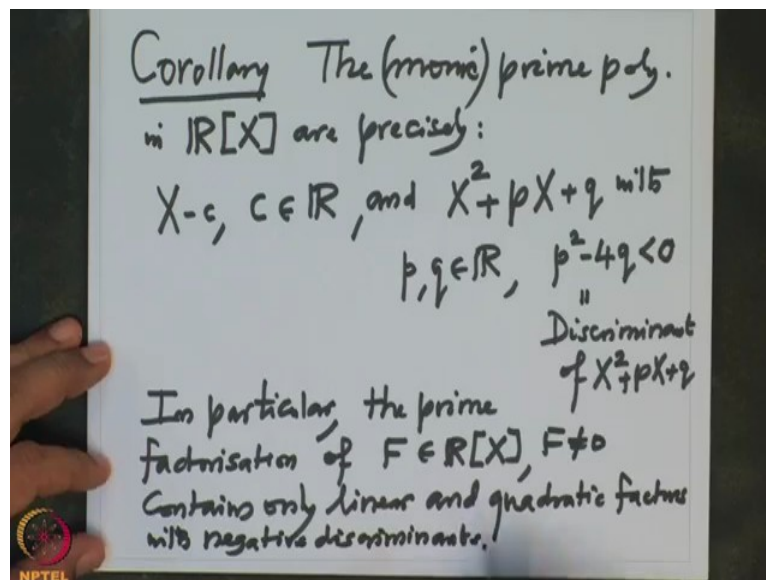 Corollary The (monic) prime poly.
in ℝ[X] are precisely:
X-c, c∈ℝ, and X²+pX+q with
p,q∈ℝ, p²-4q<0
=
Discriminant
of X²+pX+q
In particular, the prime
factorisation of F∈ℝ[X], F≠0
Contains only linear and quadratic factors
with negative discriminants.
NPTEL